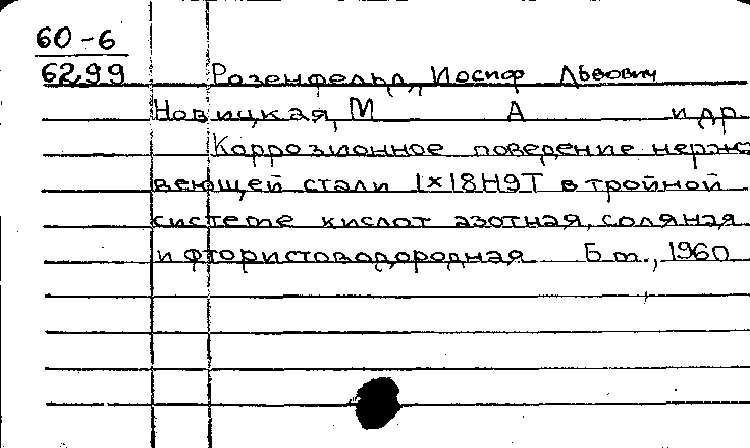 60-6
6299
Розенфельд, Иосиф Львович
Новицкая, М А и др
Коррозионное поведение нержа
веющей стали 1×18Н9Т в тройной
системе кислот азотная, соляная
и фтористоводородная Б.m., 1960